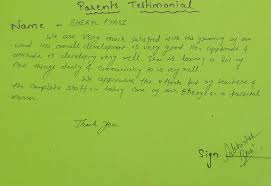 Parents Testimonial
Name - SHERYL PYARE
We are very much satisfied with the grooming of our
ward. Her overall development is very good. Her aptitude &
attitude is developing very well. She is learning a lot of
new things daily & communicating to us very well.
We appreciate the efforts put by teachers &
the complete staff in taking care of our Sheryl in a
manner.
Thank you
Sign